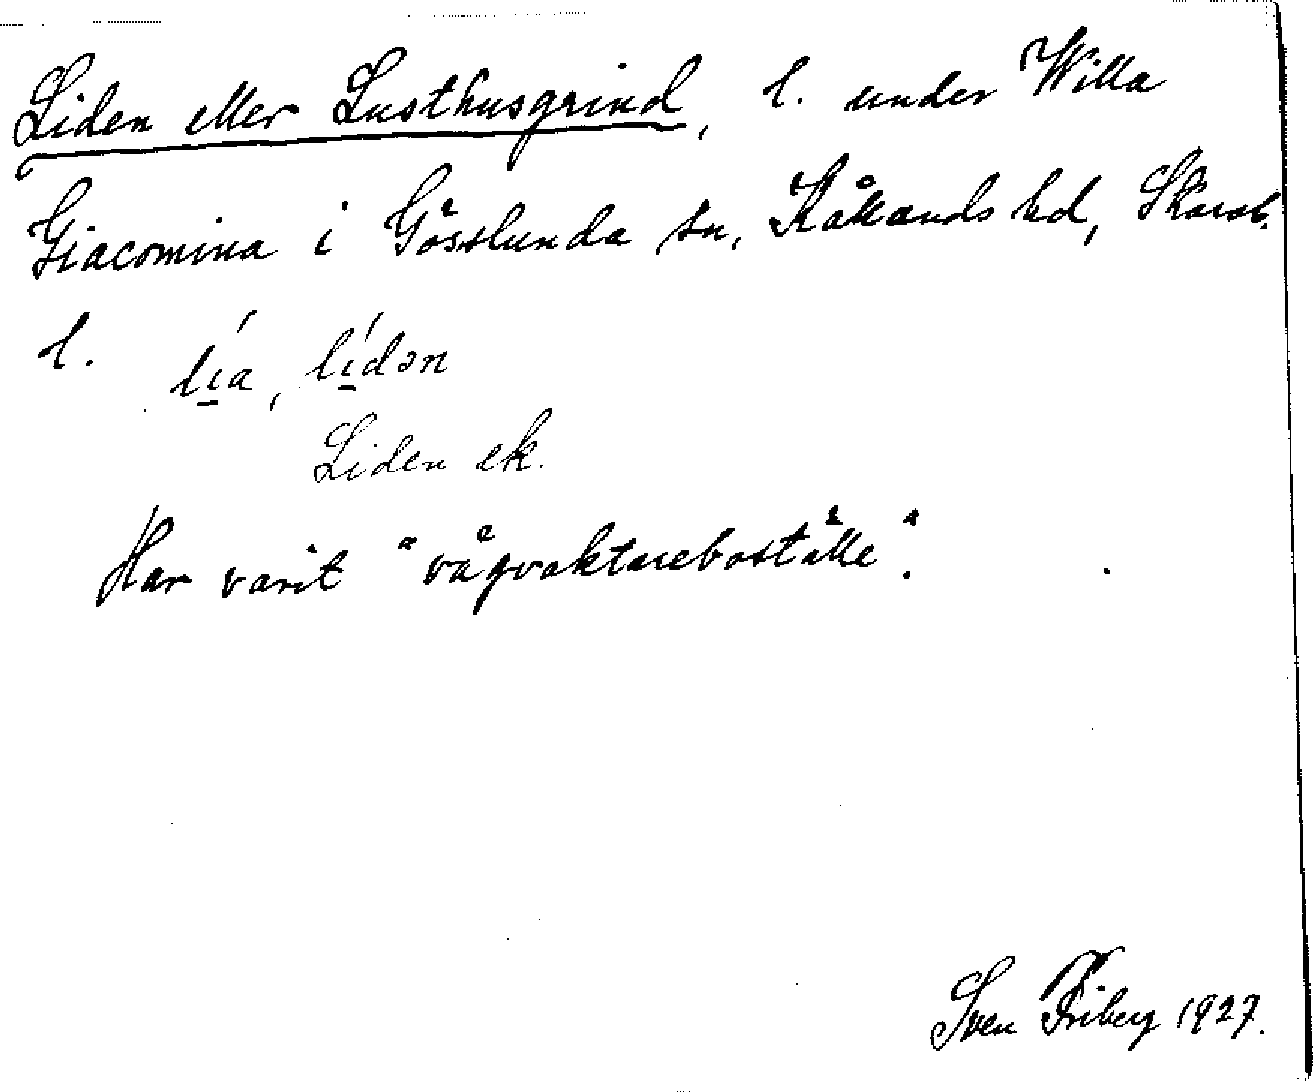 Liden eller Lusthusgrind, l. under Willa
Giacomina i Gösslunda sn, Kållands hd, Skarab.
l. lía, lídən
Liden ek.
Har varit "vågvaktareboställe".
Sven Friberg 1927.